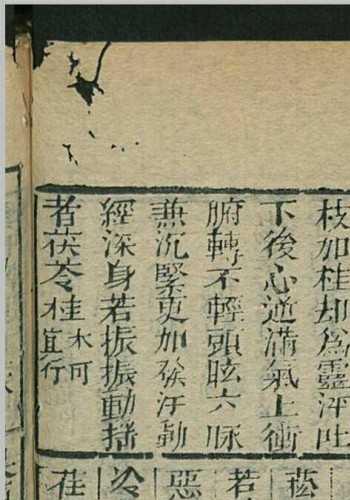 枝加桂却為靈汗吐
下後心逆滿氣上衝
腑轉不輕頭眩六脉
兼沉緊更加發汗動
經深身若振振動揺
者茯苓桂木可宜行
若
惡
冷